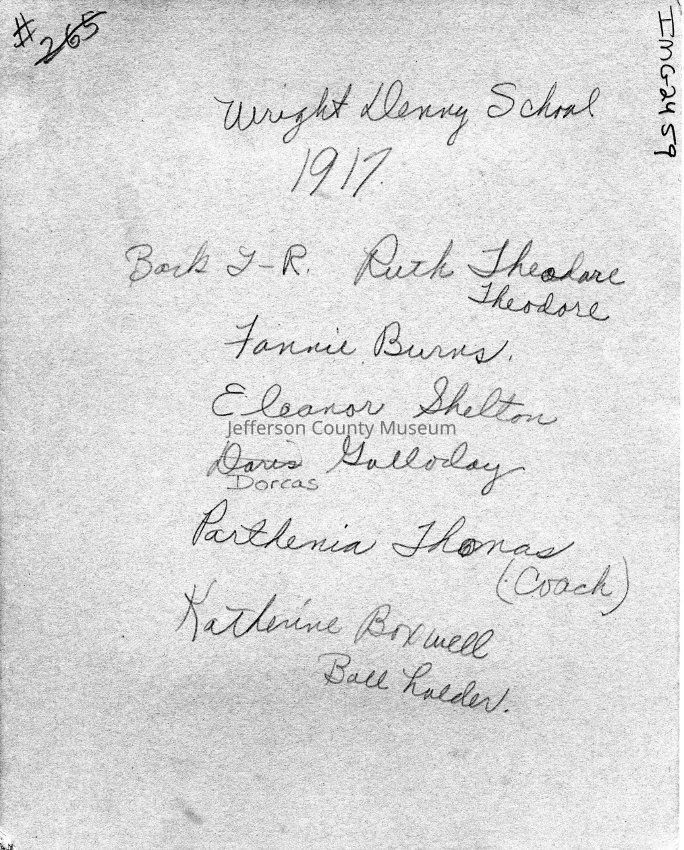 #265
IMG2459
Wright Denny School
1917.
Back L-R. Ruth Theodore
Theodore
Fannie Burns.
Eleanor Shelton
Jefferson County Museum
Doris Golloday
Dorcas
Parthenia Thomas
(Coach)
Katherine Boxwell
Ball holder.